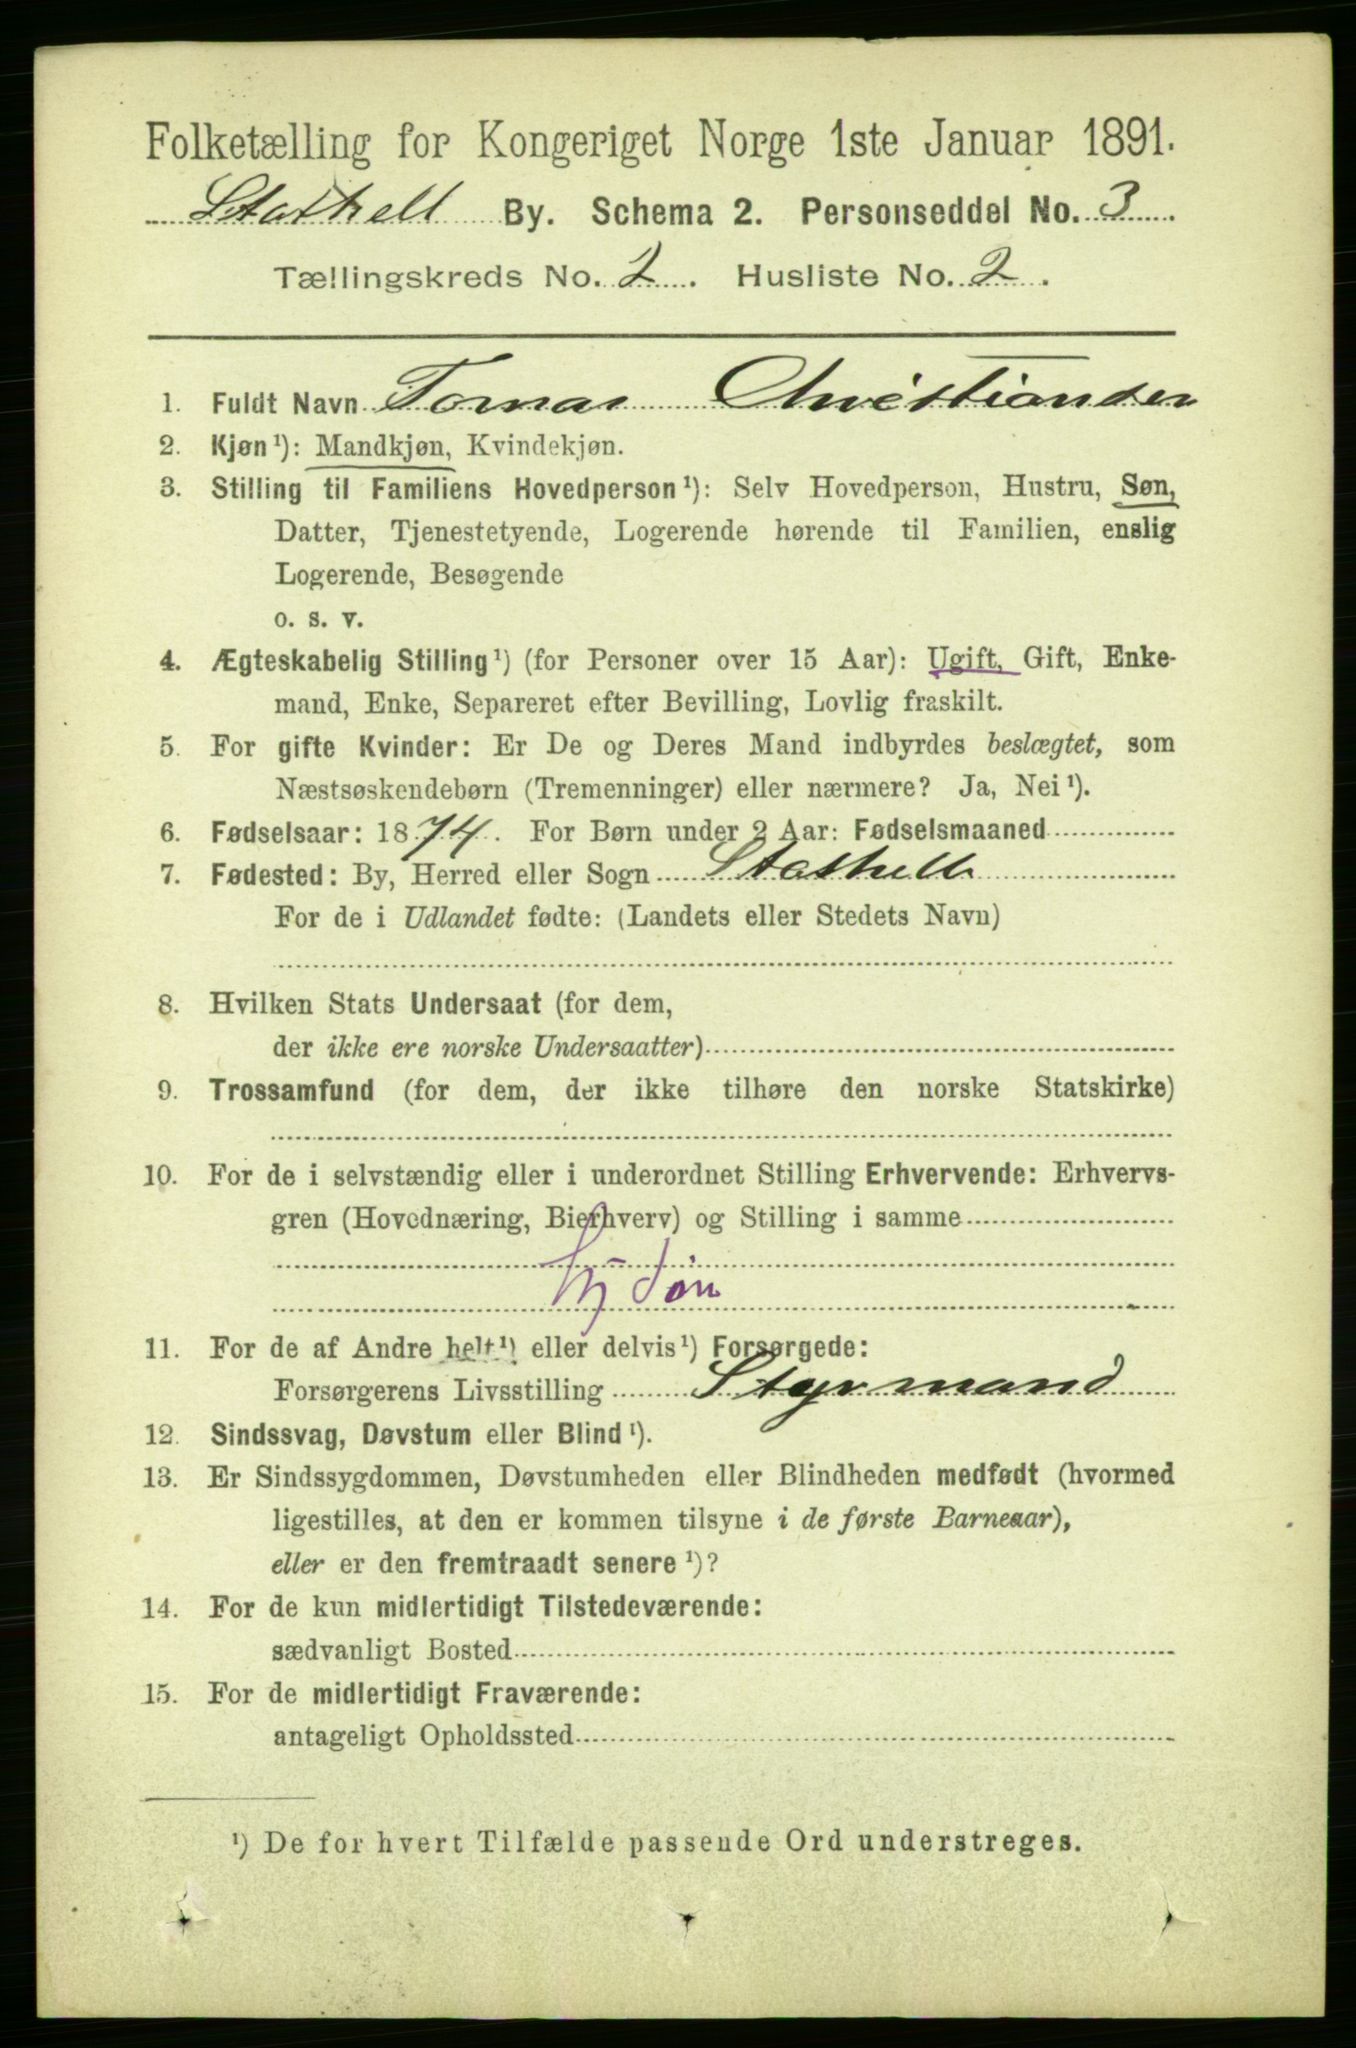 Folketælling for Kongeriget Norge 1ste Januar 1891.
Stathell By. Schema 2. Personseddel No. 3
Tællingskreds No. 2. Husliste No. 2.
1. Fuldt Navn Tomas Christiansen
2. Kjøn ¹): Mandkjøn, Kvindekjøn.
3. Stilling til Familiens Hovedperson ¹): Selv Hovedperson, Hustru, Søn,
Datter, Tjenestetyende, Logerende hørende til Familien, enslig
Logerende, Besøgende
o. s. v.
4. Ægteskabelig Stilling ¹) (for Personer over 15 Aar): Ugift, Gift, Enke-
mand, Enke, Separeret efter Bevilling, Lovlig fraskilt.
5. For gifte Kvinder: Er De og Deres Mand indbyrdes beslægtet, som
Næstsøskendebørn (Tremenninger) eller nærmere? Ja, Nei ¹).
6. Fødselsaar: 1874. For Børn under 2 Aar: Fødselsmaaned
7. Fødested: By, Herred eller Sogn Stathelle
For de i Udlandet fødte: (Landets eller Stedets Navn)
8. Hvilken Stats Undersaat (for dem,
der ikke ere norske Undersaatter)
9. Trossamfund (for dem, der ikke tilhøre den norske Statskirke)
10. For de i selvstændig eller i underordnet Stilling Erhvervende: Erhvervs-
gren (Hovednæring, Bierhverv) og Stilling i samme
11. For de af Andre helt ¹) eller delvis ¹) Forsørgede:
Forsørgerens Livsstilling Styrmand
12. Sindssvag, Døvstum eller Blind ¹).
13. Er Sindssygdommen, Døvstumheden eller Blindheden medfødt (hvormed
ligestilles, at den er kommen tilsyne i de første Barneaar),
eller er den fremtraadt senere ¹)?
14. For de kun midlertidigt Tilstedeværende:
sædvanligt Bosted
15. For de midlertidigt Fraværende:
antageligt Opholdssted
¹) De for hvert Tilfælde passende Ord understreges.